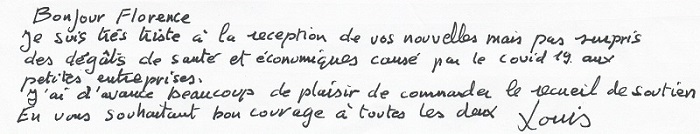 Bonjour Florence
Je suis très triste à la reception de vos nouvelles mais pas surpris
des dégâts de santé et économiques causé par le covid 19 aux
petites entreprises.
J'ai d'avance beaucoups de plaisir de commander le recueil de soutien
En vous souhaitant bon courage à toutes les deux Louis